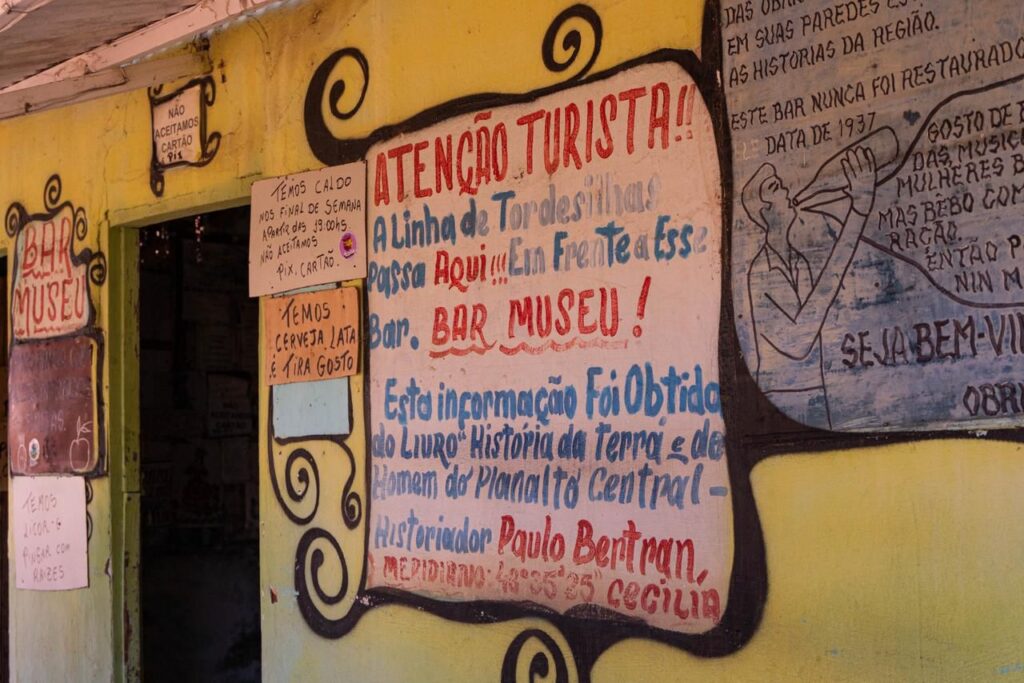 NÃO
ACEITAMOS
CARTÃO
PIX
BAR
MUSEU
TEMOS
LICOR-E
PINGAR COM
RAIZES
TEMOS CALDO
NOS FINAL DE SEMANA
APARTIR DAS 19:00HS
NÃO ACEITAMOS
PIX, CARTÃO.
TEMOS
CERVEJA LATA
E TIRA GOSTO
ATENÇÃO TURISTA!!
A Linha de Tordesilhas
Passa AQui!!! Em Frente a Esse
Bar. BAR MUSEU!
Esta informação Foi Obtida
do LIURO "História da Terra e do
Homem do Planalto Central-
Historiador Paulo Bertran,
O MERIDIANO: 48°35'25" CECILIA
DAS OBRA
EM SUAS PAREDES ES
AS HISTORIAS DA REGIÃO.
ESTE BAR NUNCA FOI RESTAURADO
ELE DATA DE 1937
GOSTO DE B
DAS, MUSICA
MULHERES B
MAS BEBO COM
RAÇÃO.
ENTÃO P
NIN M
SEJA BEM-VIN
OBRI